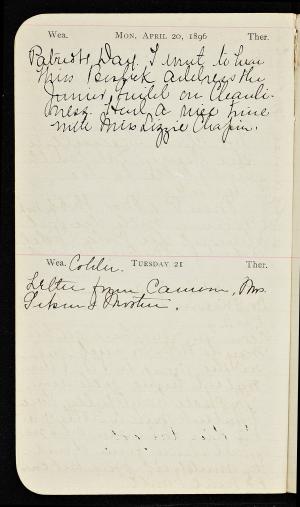 Wea. MON. APRIL 20, 1896 Ther.
Patriots Day. I went to hear
Miss address the
Junior Guild on Cleanli-
ness. Had a nice time
with Miss Lizzie Chapin.
Wea. Colder. TUESDAY 21 Ther.
Letter from Cameron, Mrs.